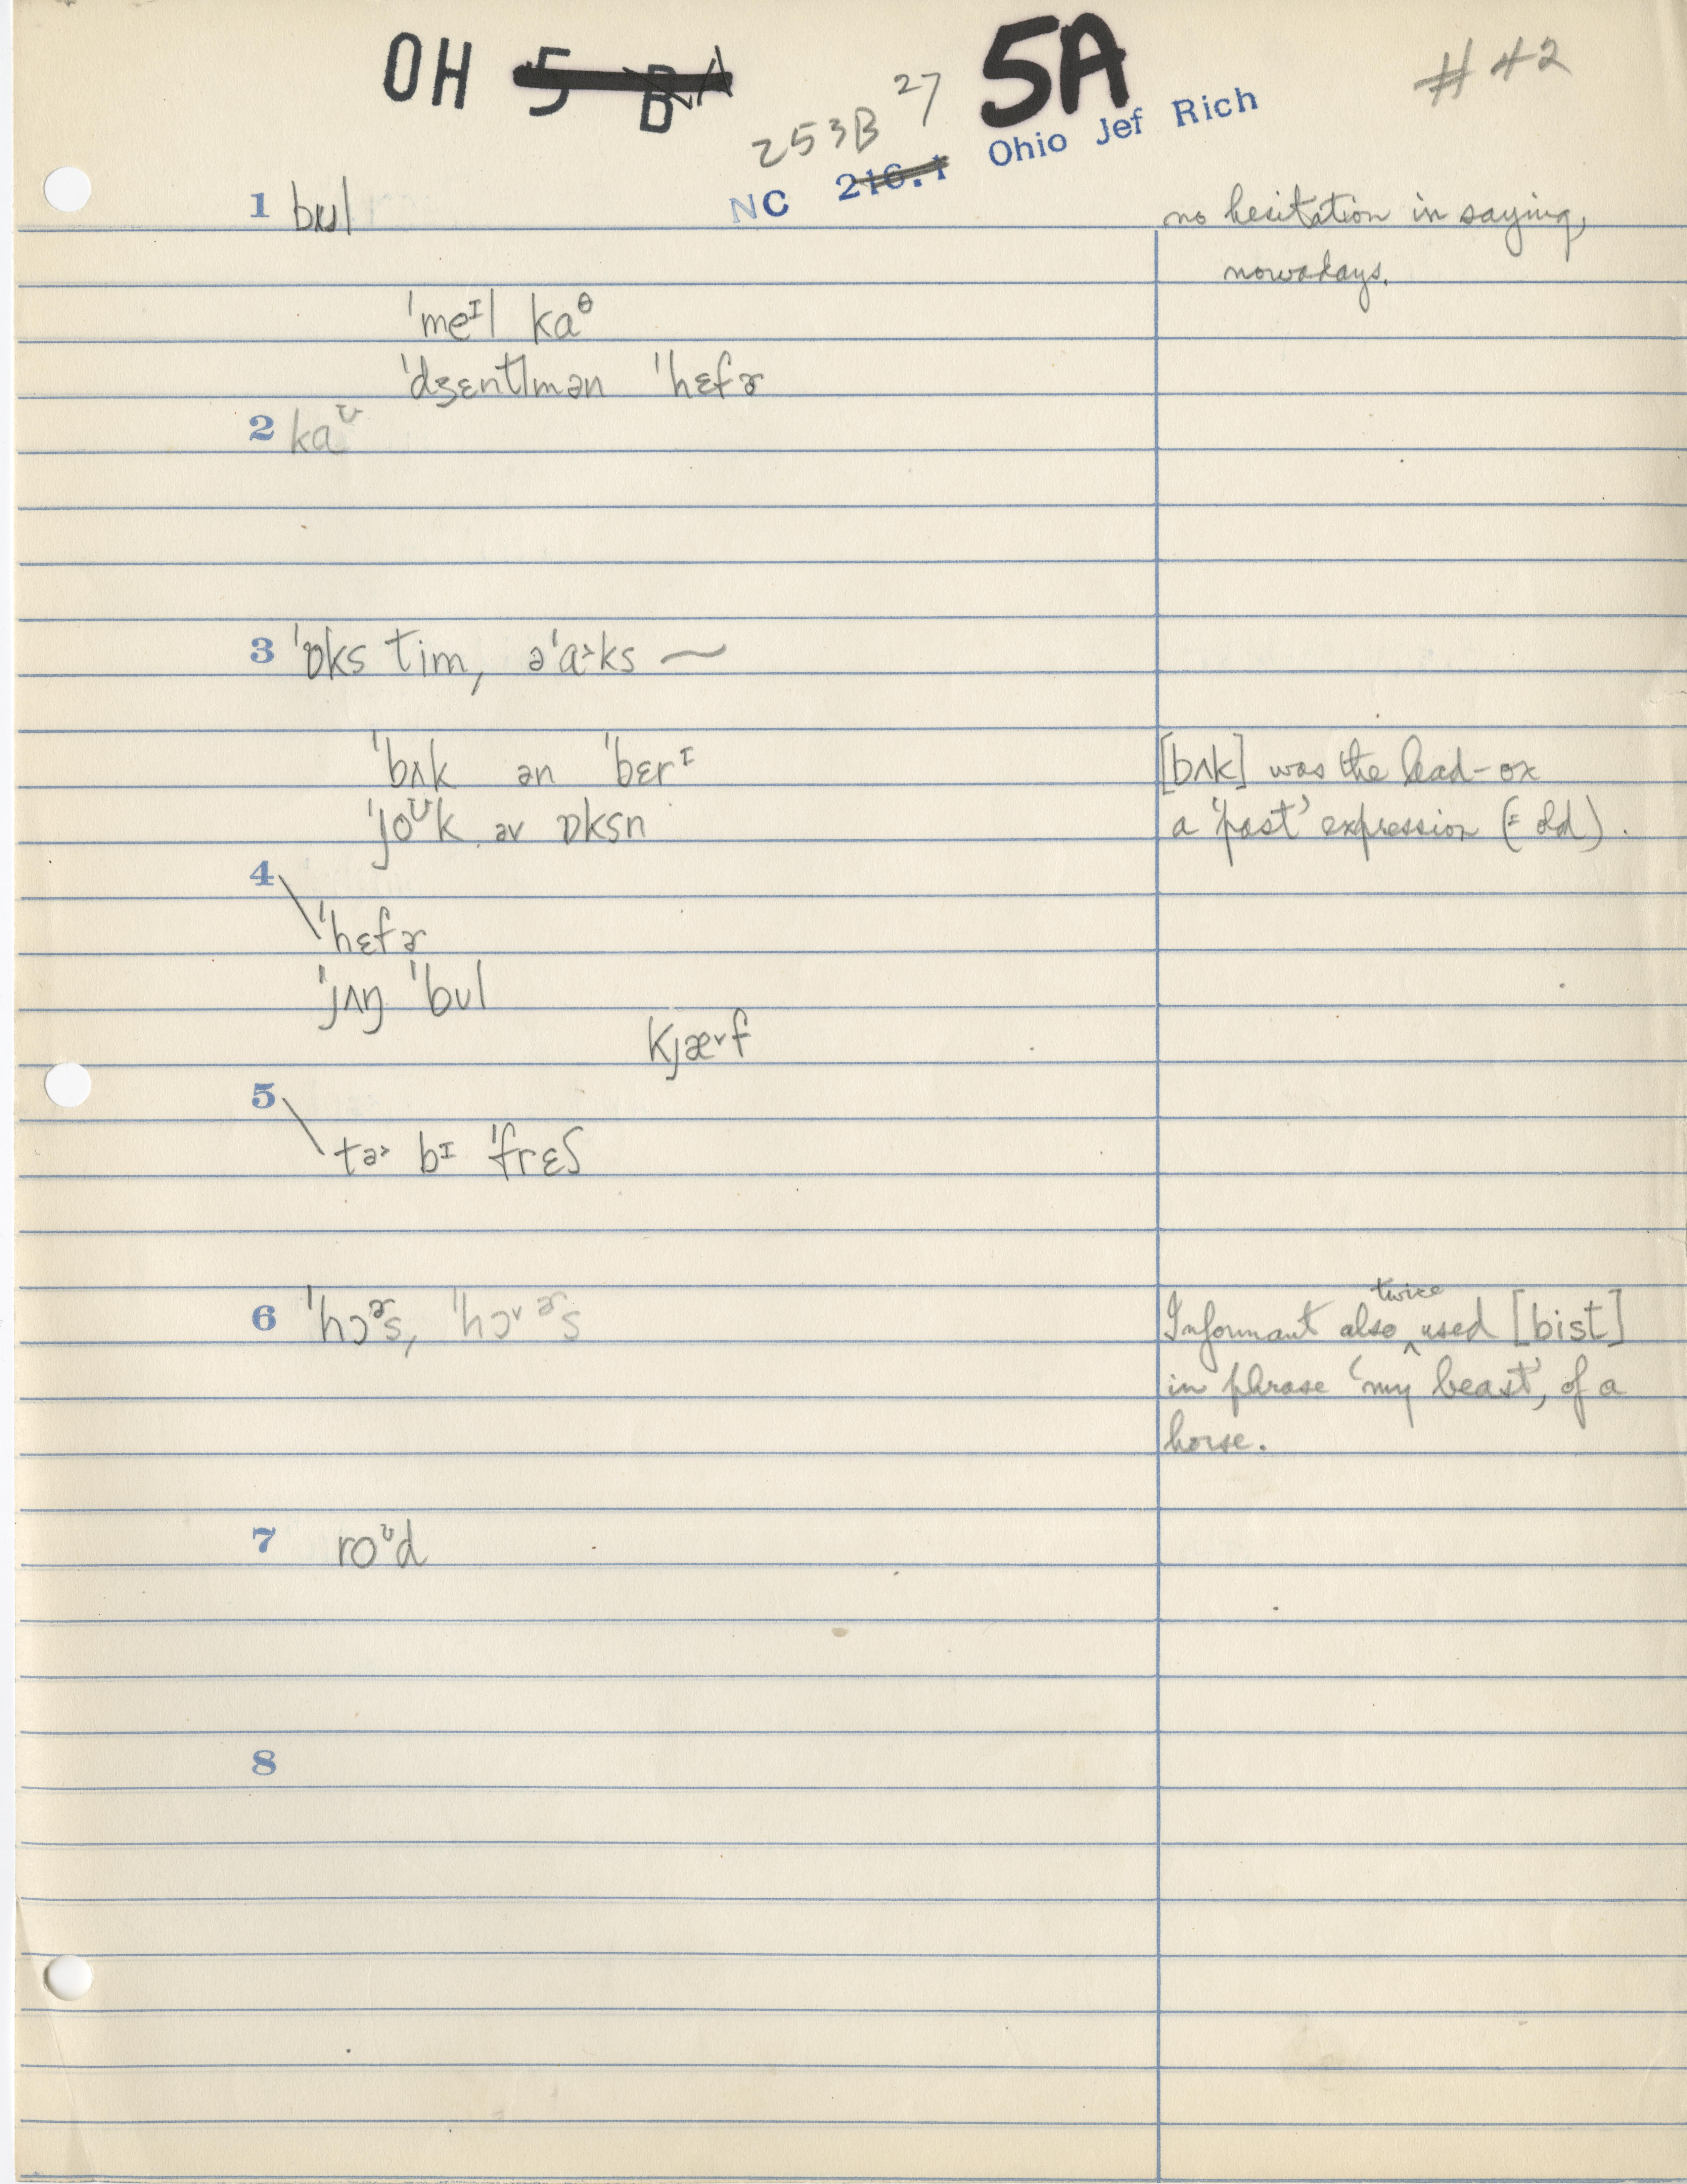 OH 5A # 42
253B 27
NC 216.1 Ohio Jef Rich
1 bʊl no hesitation in saying,
nowadays.
ˈmeᶦl kaᶿ
ˈdʒɛntlmən ˈhɛfɚ
2 kaᶷ
3 ˈɒks tim, əˈa˃ks ~
ˈbʌk ən ˈbɛrᶦ [bʌk] was the lead-ox
ˈjoᶷk əv ɒksn a ‘past’ expression (= old).
4
ˈhɛfɚ
ˈjʌŋ ˈbʊl
kjæ˅f
5
tə˃ bɪ ˈfrɛʃ
6 ˈhɔᵊ˞s, ˈhɔ˅ᵊ˞s Informant also twice used [bist]
in phrase ‘my beast’, of a
horse.
7 roᶷd
8